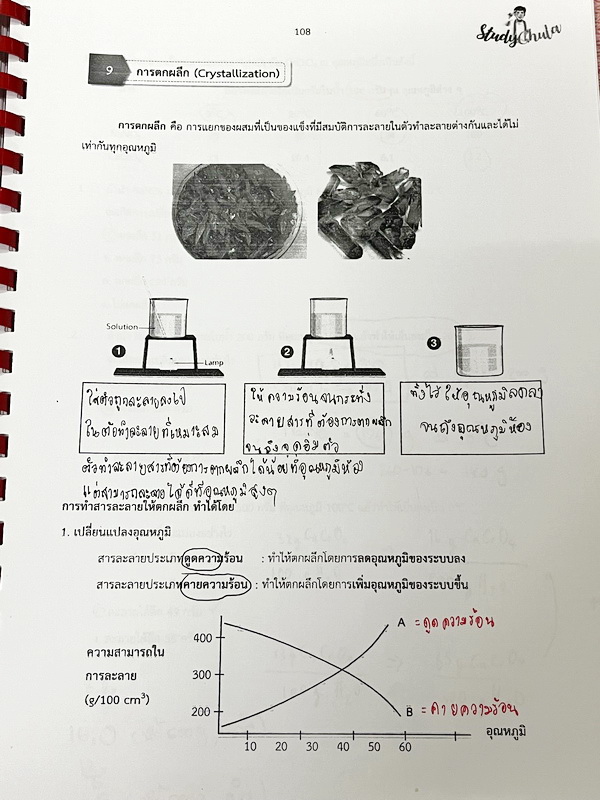 108
Study Chula
9 การตกผลึก (Crystallization)
การตกผลึก คือ การแยกของผสมที่เป็นของแข็งที่มีสมบัติการละลายในตัวทำละลายต่างกันและได้ไม่
เท่ากันทุกอุณหภูมิ
Solution
Lamp
1
2
3
ใส่ตัวถูกละลายลงไป
ในตัวทำละลายที่เหมาะสม
ให้ความร้อนจนกระทั่ง
ละลายสารที่ต้องการตกผลึก
จนถึงจุดอิ่มตัว
ทิ้งไว้ให้อุณหภูมิลดลง
จนถึงอุณหภูมิห้อง
ตัวทำละลายสารที่ต้องการตกผลึกได้น้อยที่อุณหภูมิห้อง
แต่สามารถละลายได้ดีที่อุณหภูมิสูงๆ
การทำสารละลายให้ตกผลึก ทำได้โดย
1. เปลี่ยนแปลงอุณหภูมิ
สารละลายประเภทดูดความร้อน : ทำให้ตกผลึกโดยการลดอุณหภูมิของระบบลง
สารละลายประเภทคายความร้อน : ทำให้ตกผลึกโดยการเพิ่มอุณหภูมิของระบบขึ้น
ความสามารถใน
การละลาย
(g/100 cm³)
400
300
200
A = ดูดความร้อน
B = คายความร้อน
10 20 30 40 50 60
อุณหภูมิ